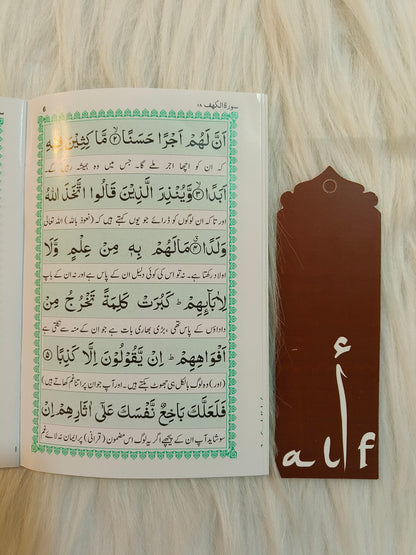 سورۃ الکھف ۱۸
6
اَنَّ لَهُمْ اَجْرًا حَسَنًا ۙ﴿۲﴾ مَّاكِثِيْنَ فِيْهِ
کہ ان کو اچھا اجر ملے گا۔ جس میں وہ ہمیشہ رہیں گے۔
اَبَدًا ۙ﴿۳﴾ وَّيُنْذِرَ الَّذِيْنَ قَالُوا اتَّخَذَ اللّٰهُ
اور تاکہ ان لوگوں کو ڈرائے جو یوں کہتے ہیں کہ (نعوذ باللہ) اللہ تعالیٰ
وَلَدًا ۗ﴿۴﴾ مَالَهُمْ بِهٖ مِنْ عِلْمٍ وَّلَا
اولاد رکھتا ہے۔ نہ تو اس کی کوئی دلیل ان کے پاس ہے اور نہ ان کے باپ
لِاٰبَآىِٕهِمْ ؕ كَبُرَتْ كَلِمَةً تَخْرُجُ مِنْ
داداؤں کے پاس تھی، بڑی بھاری بات ہے جو ان کے منہ سے نکلتی ہے
اَفْوَاهِهِمْ ؕ اِنْ يَّقُوْلُوْنَ اِلَّا كَذِبًا ﴿۵﴾
(اور) وہ لوگ بالکل ہی جھوٹ بکتے ہیں۔ اور آپ جو ان پر اتنا غم کھاتے ہیں
فَلَعَلَّكَ بَاخِعٌ نَّفْسَكَ عَلٰٓى اٰثَارِهِمْ اِنْ
سو شاید آپ ان کے پیچھے اگر یہ لوگ اس مضمون (قرآنی) پر ایمان نہ لائے غم
أ
alf